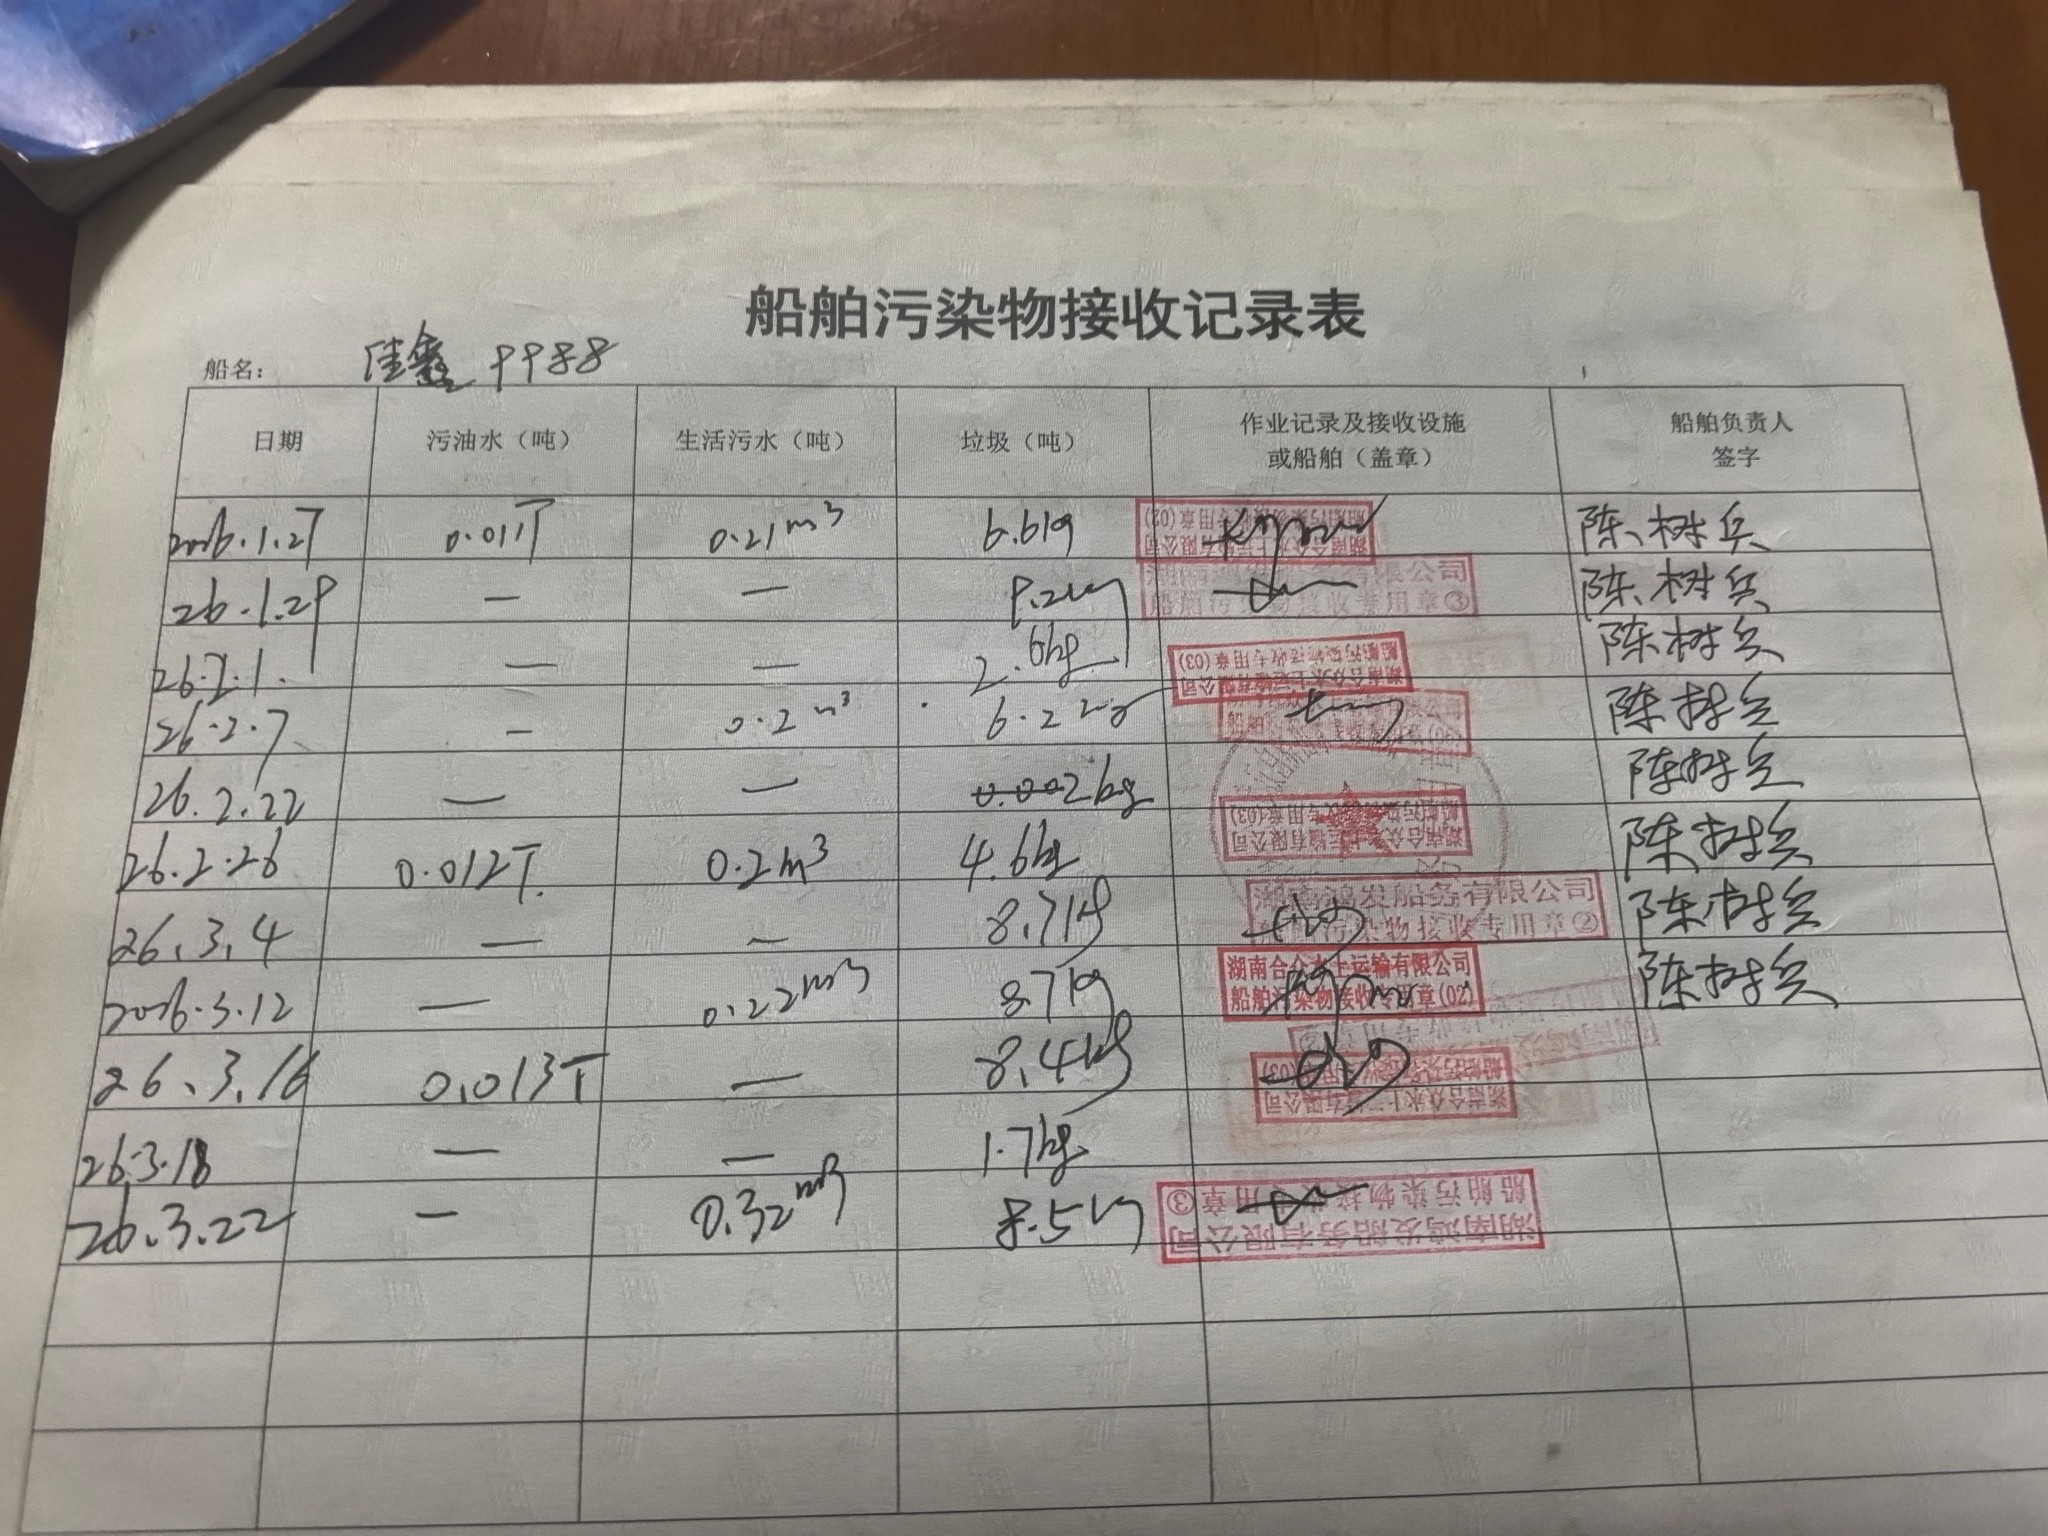 船舶污染物接收记录表
船名： 佳鑫 9988
日期 污油水（吨） 生活污水（吨） 垃圾（吨） 作业记录及接收设施或船舶（盖章） 船舶负责人签字
2026.1.27 0.011T 0.21m³ 6.6kg 湖南合众水上运输有限公司 船舶污染物接收专用章(02) 陈树兵
26.1.29 — — 9.2kg 船舶污染物接收专用章③ 陈树兵
26.2.1. — — 2.6kg 湖南合众水上运输有限公司 船舶污染物接收专用章(03) 陈树兵
26.2.7 — 0.2m³ 6.2kg 陈树兵
26.2.22 — — 0.002kg 陈树兵
26.2.26 0.012T. 0.2m³ 4.6kg 湖南合众水上运输有限公司 船舶污染物接收专用章(03) 陈树兵
26.3.4 — — 8.7kg 湖南鸿发船务有限公司 船舶污染物接收专用章② 陈树兵
2026.3.12 — 0.22m³ 8.7kg 湖南合众水上运输有限公司 船舶污染物接收专用章(02) 陈树兵
26.3.16 0.013T — 8.4kg
26.3.18 — — 1.7kg 湖南合众水上运输有限公司 船舶污染物接收专用章(03)
26.3.22 — 0.32m³ 8.5kg 湖南鸿发船务有限公司 船舶污染物接收专用章③